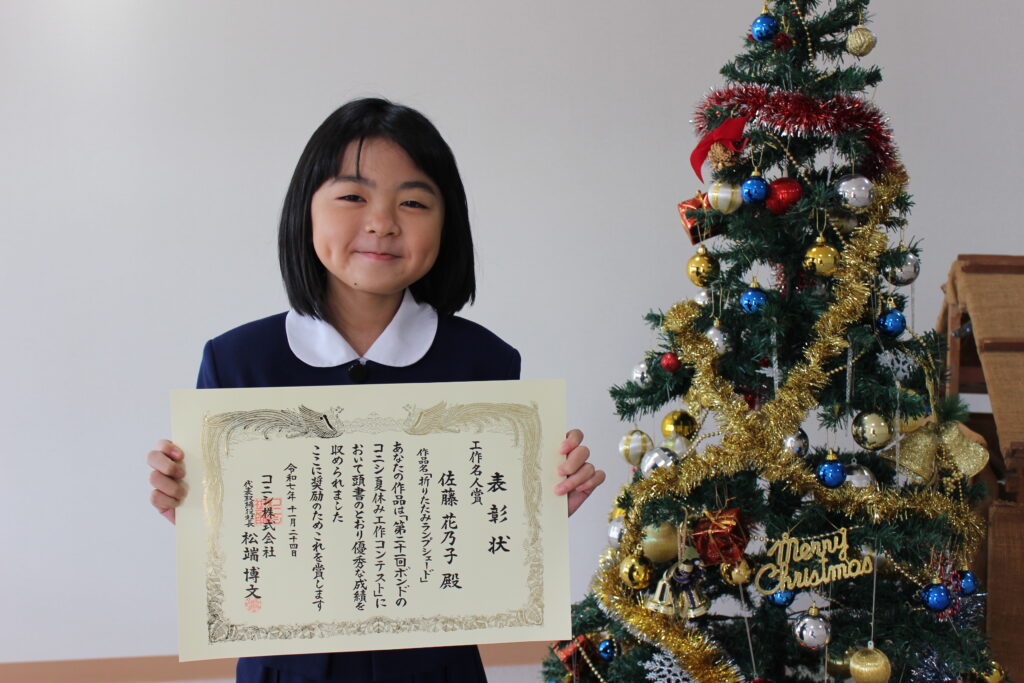 表彰状
工作名人賞
佐藤 花乃子 殿
作品名「折りたたみランプシェード」
あなたの作品は「第二十一回ボンドの
コニシ夏休み工作コンテスト」に
おいて頭書のとおり優秀な成績を
収められました
ここに奨励のためこれを賞します
令和七年 十一月二十四日
コニシ株式会社
代表取締役社長 松端 博文
Merry
Christmas